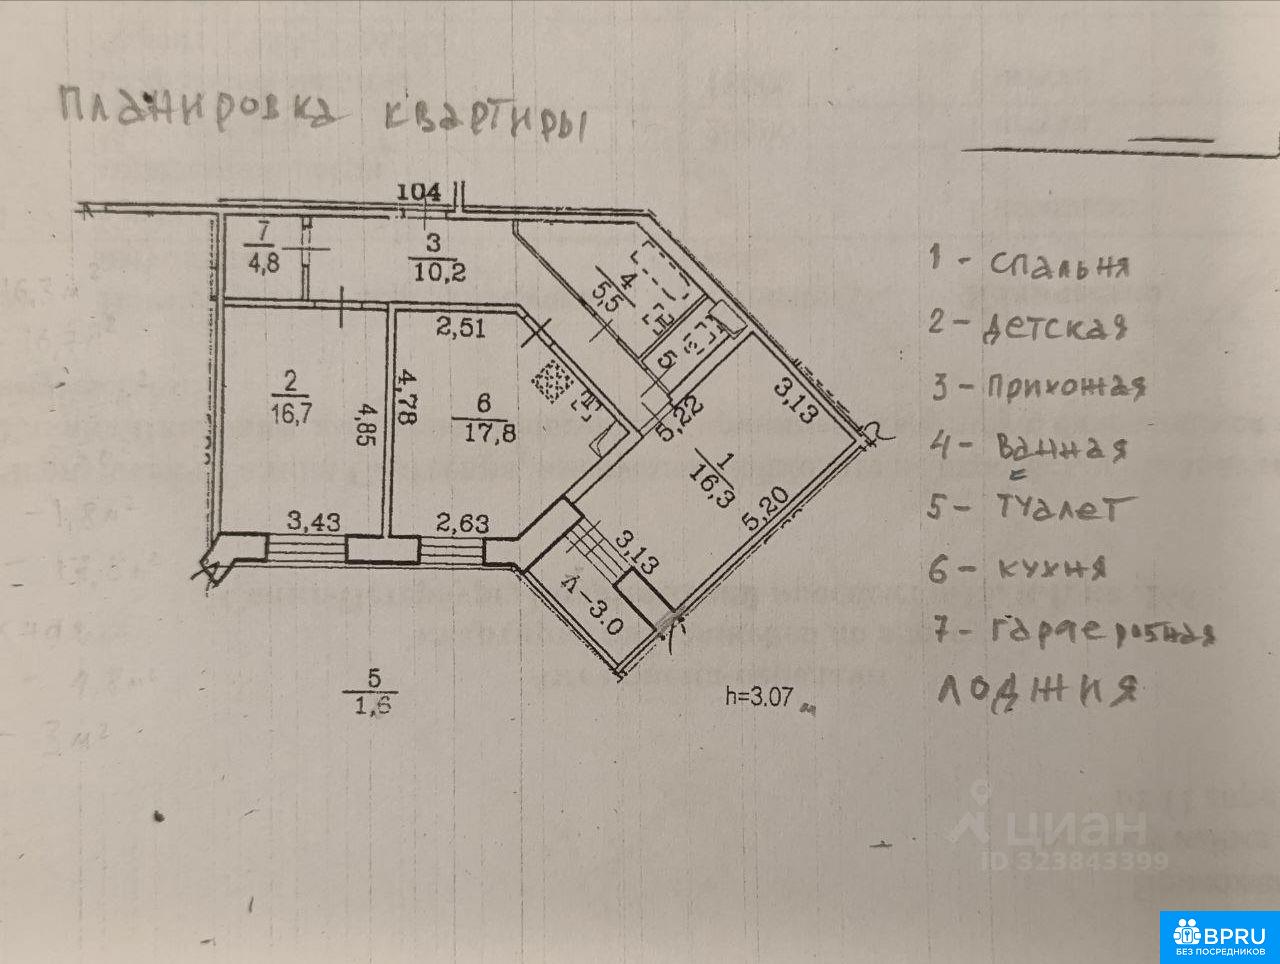 Планировка квартиры
104
7
4,8
3
10,2
4
5,5
5
2,51
2
16,7
4,85
4,78
6
17,8
5,22
3,13
1
16,3
5,20
3,43
2,63
3,13
Л-3.0
5
1,6
h=3.07 м
1 - Спальня
2 - Детская
3 - Прихожая
4 - Ванная
5 - Туалет
6 - Кухня
7 - Гардеробная
Лоджия
циан
ID 323843399
BPRU
БЕЗ ПОСРЕДНИКОВ